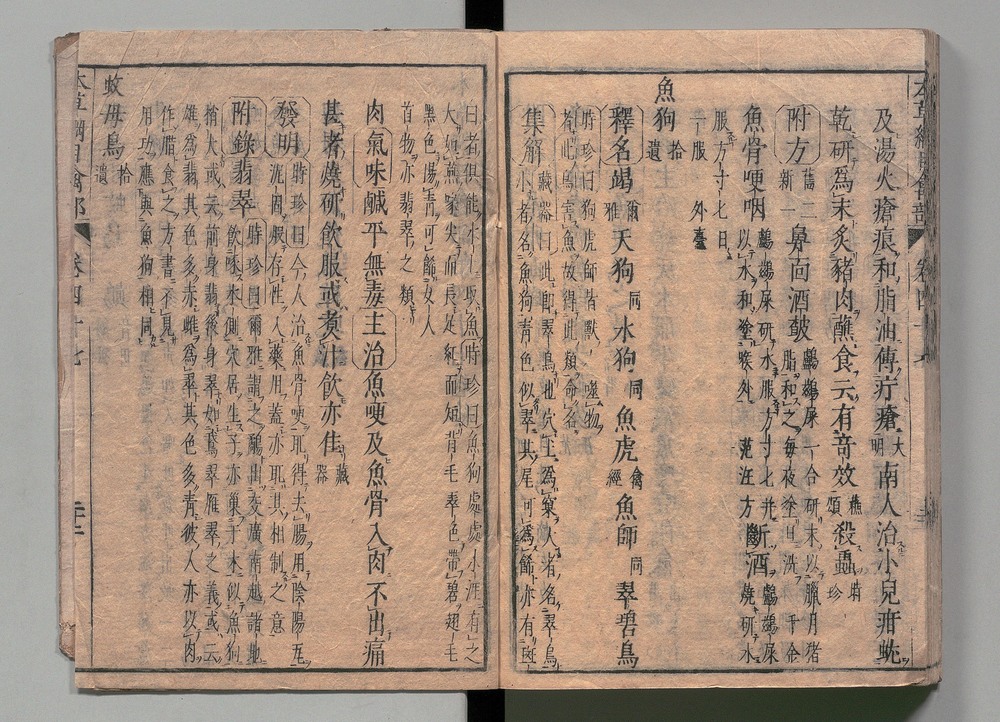 本草綱目禽部
卷四十七
及湯火瘡痕和脂油傅疔瘡大明南人治小兒疳蚘
乾研為末炙豬肉蘸食云有奇效蘇頌殺蟲時珍
附方舊二新一鼻面酒皶鸕鷀屎一合研末以臘月豬
脂和之每夜塗旦洗千金
魚骨哽咽鸕鷀屎研水服方寸匕并
以水和塗喉外范汪方斷酒鸕鷀屎燒研水
服方寸匕日
一服外臺
魚狗拾遺
釋名鴗爾雅天狗同水狗同魚虎禽經魚師同翠碧鳥
時珍曰狗虎師皆獸噬物
者此鳥害魚故得此類命名
集解藏器曰此即翠鳥也穴土為窠大者名翠鳥
小者名魚狗青色似翠其尾可為飾亦有斑
白者俱能水上取魚時珍曰魚狗處處水涯有之
大如燕喙尖而長足紅而短背毛翠色帶碧翅毛
黑色揚青可飾女人
首物亦翡翠之類
肉氣味鹹平無毒主治魚哽及魚骨入肉不出痛
甚者燒研飲服或煮汁飲亦佳藏器
發明時珍曰今人治魚骨哽取得去腸用陰陽瓦
泥固煅存性入藥用蓋亦取其相制之意
附錄翡翠時珍曰爾雅謂之鷸出交廣南越諸地
飲啄水側穴居生子亦巢于木似魚狗
稍大或云前身翡後身翠如鵞翠雁翠之義或云
雄為翡其色多赤雌為翠其色多青彼人亦以肉
作腊食之方書不見
用功應與魚狗相同
蚊母鳥拾遺
本草綱目禽部
卷四十七